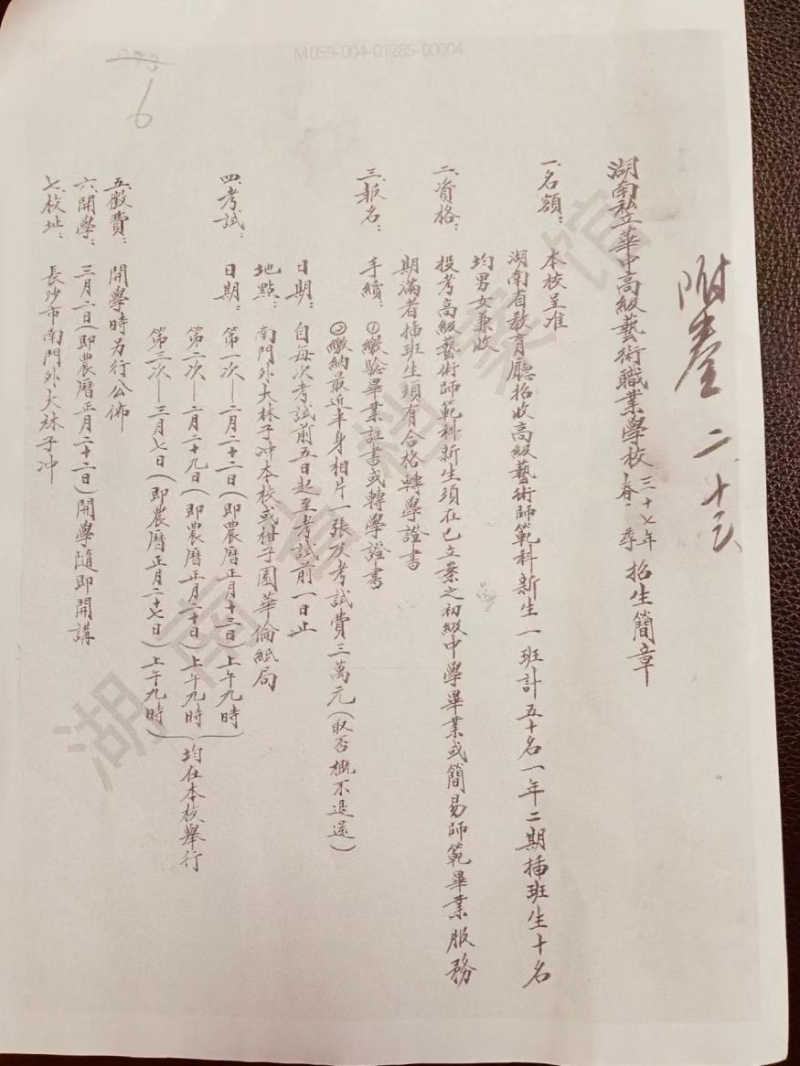 M059-004-01285-00004
6
附叁 二十三
湖南私立華中高級藝術職業學校三十七年春季招生簡章
一、名額：本校呈准
湖南省教育廳招收高級藝術師範科新生一班計五十名一年二期插班生十名
均男女兼收
二、資格：投考高級藝術師範科新生須在已立案之初級中學畢業或簡易師範畢業服務
期滿者插班生須有合格轉學證書
三、報名：手續：①繳驗畢業証書或轉學證書
②繳納最近半身相片一張及考試費三萬元（取否概不退還）
日期：自每次考試前五日起至考試前一日止
地點：南門外大林子冲本校或柑子園華倫紙局
四、考試：日期：第一次—二月二十二日（即農曆正月十三日）上午九時
第二次—二月二十九日（即農曆正月二十日）上午九時
第三次—三月七日（即農曆正月二十七日）上午九時
均在本校舉行
五、繳費：開學時另行公佈
六、開學：三月二日（即農曆正月二十二日）開學隨即開講
七、校址：長沙市南門外大林子冲
湖南省檔案館